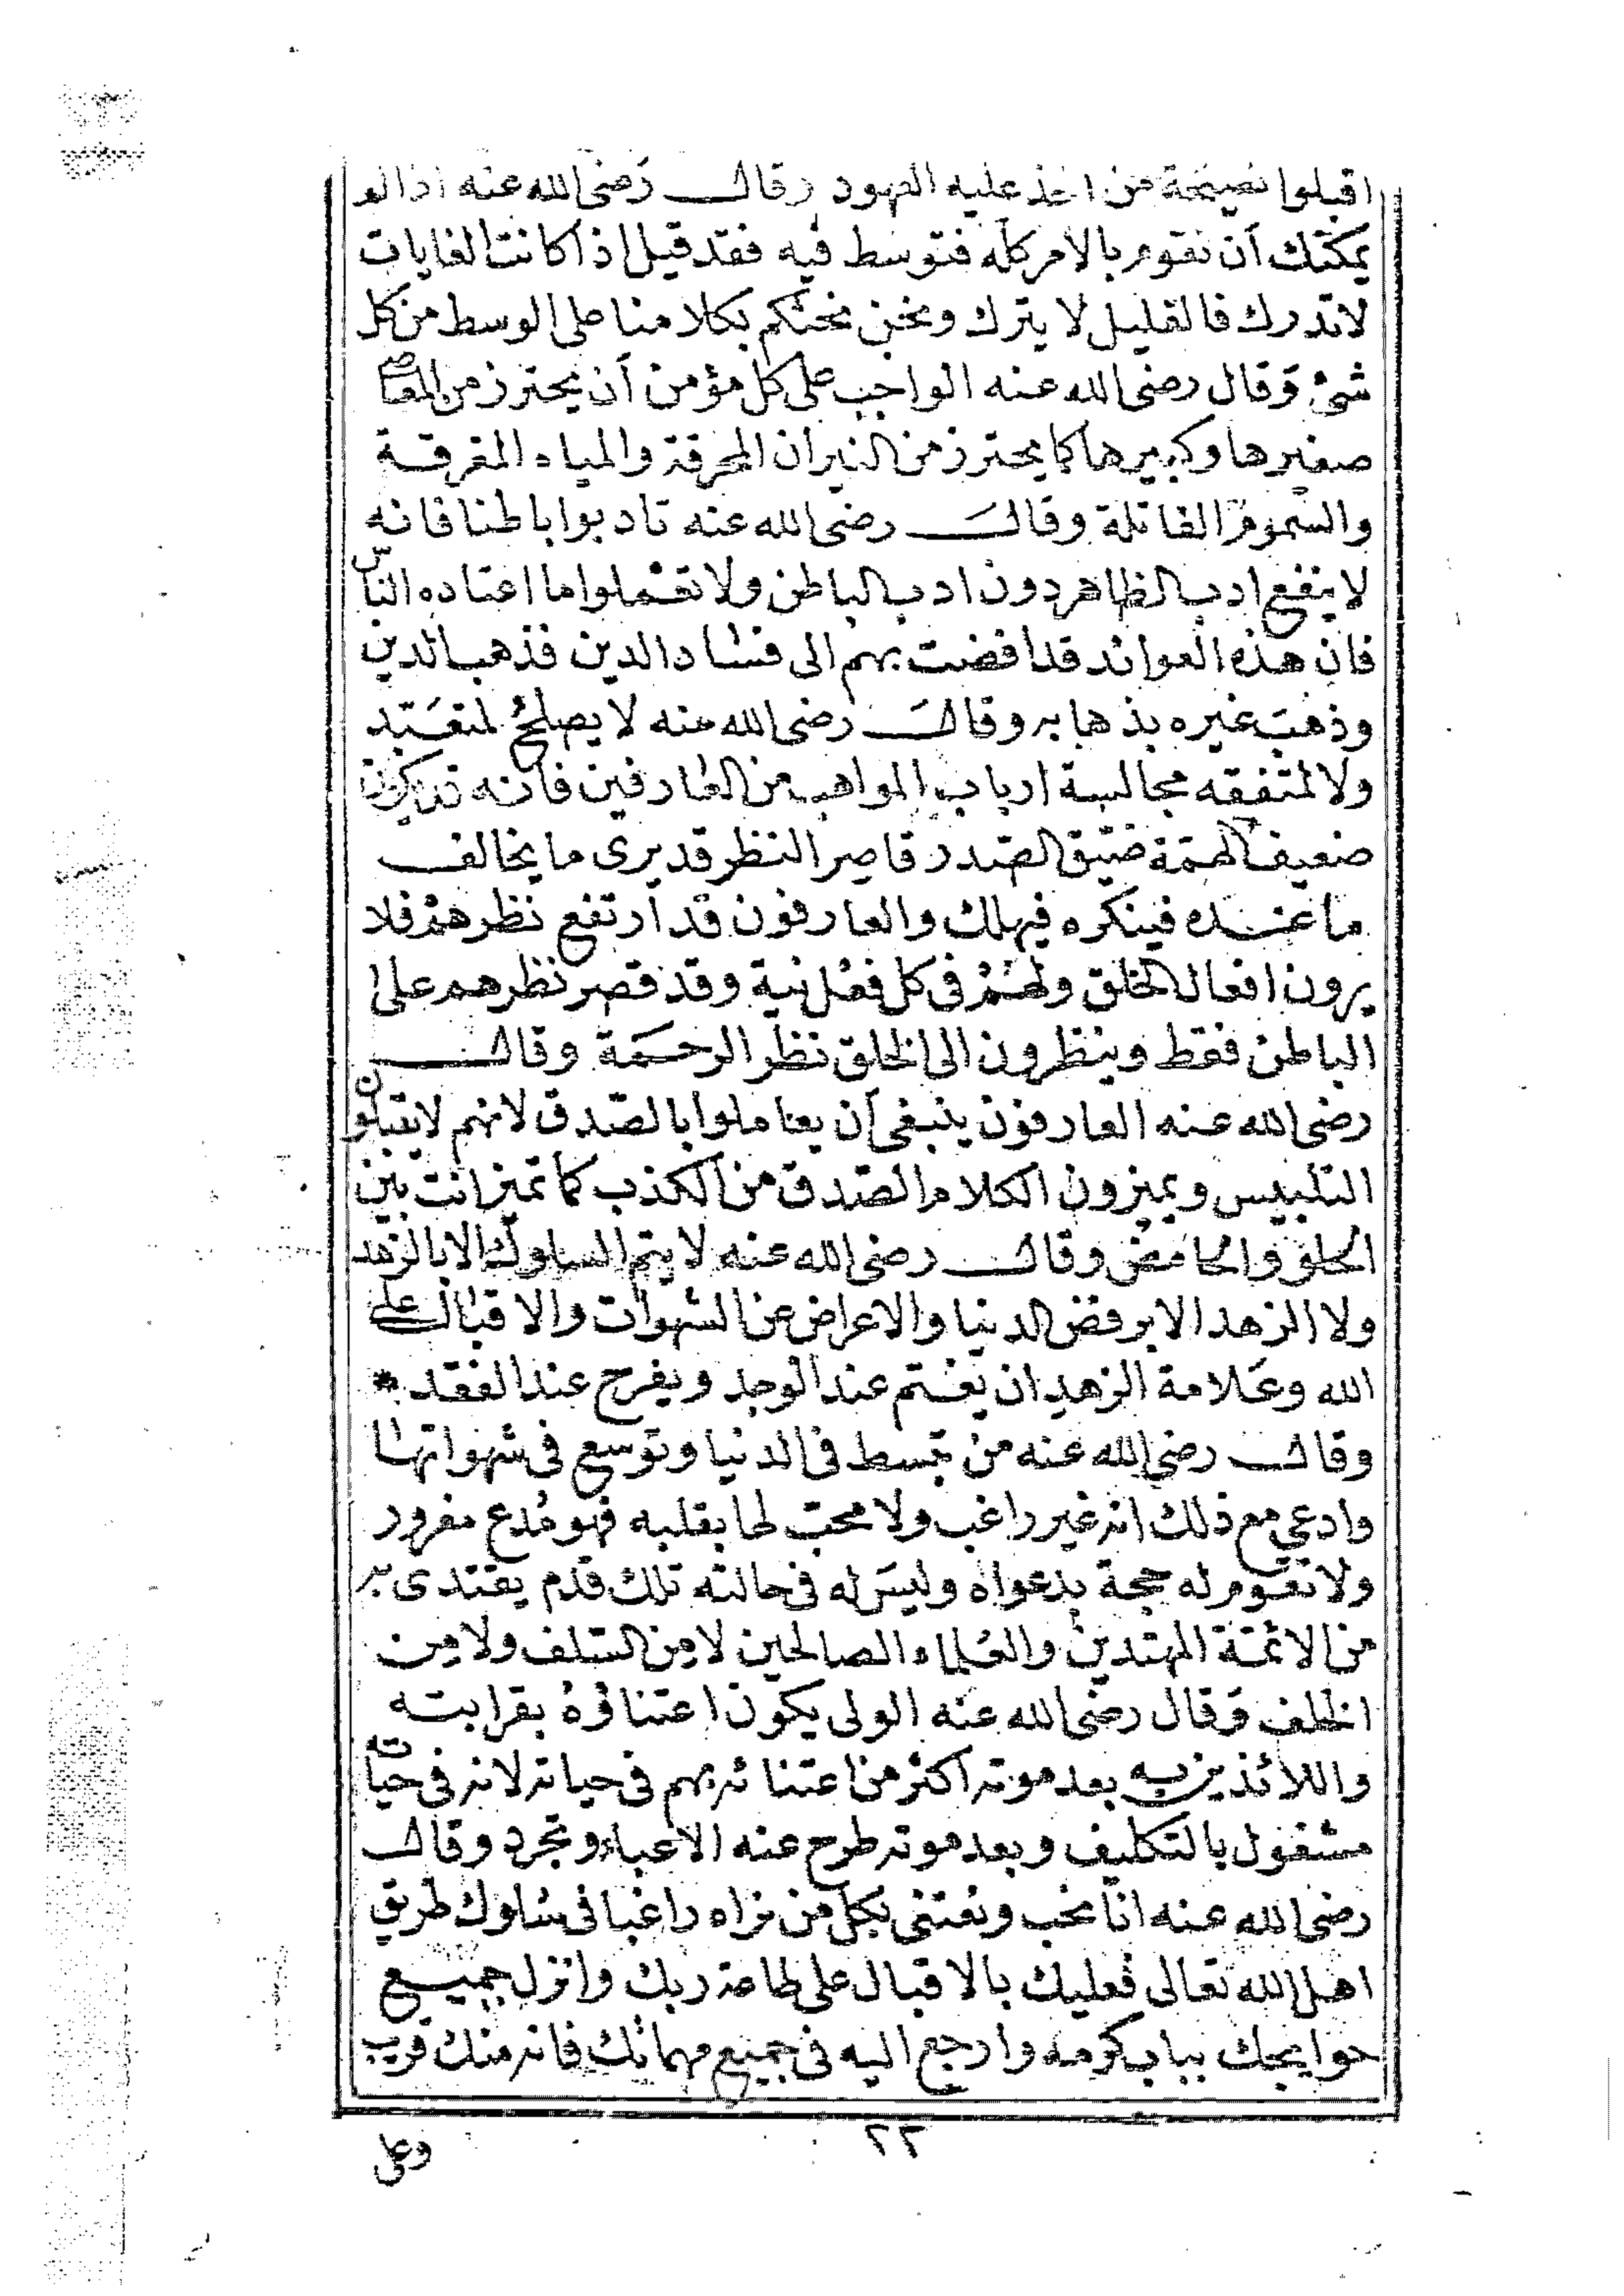 اقبلوا نصيحة من اخذ عليه العهود وقال رَضى الله عنه اذا لم
يمكنك أن تقوم بالامر كله فتوسط فيه فقد قيل اذا كانت الغايات
لا تدرك فالقليل لا يترك ونحن نحثكم بكلامنا على الوسط من كل
شئ وَقال رضى الله عنه الواجب على كل مؤمن أن يحترز من المعاصى
صغيرها وكبيرها كما يحترز من النيران المحرقة والمياه المغرقة
والسموم القاتلة وقالَ رضى الله عنه تادبوا باطنا فانه
لا ينفع ادب الظاهر دون ادب الباطن ولا تفعلوا ما اعتاده الناس
فان هذه العوائد قد افضت بهم الى فساد الدين فذهب الدين
وذهبَ غيره بذهابه وقالَ رضى الله عنه لا يصلحُ لمتعَبّد
ولا لمتفقه مجالسة ارباب المواهب من العارفين فانه قد يكون
ضعيف الهمّة ضيّق الصّدر قاصر النظر قد يرى ما يخالف
ما عنده فينكره فيهلك والعارفون قد ارتفع نظرهمْ فلا
يرون افعال الخلق ولهُمْ فى كل فعْل نية وقد قصر نظرهم على
الباطن فقط وينظرون الى الخلق نظر الرحمَة وقال
رضى الله عنه العارفون ينبغى أن يعاملوا بالصّدق لانهم لا يقبلون
التلبيس ويميزون الكلام الصّدق من الكذب كما تميز انت بين
الحلو والحامض وقال رضى الله عنه لا يتم السلوك الا بالزهد
ولا الزهد الا برفض الدنيا والاعراض عن الشهوات والاقبال على
الله وعَلامة الزهد ان يغتم عند الوجد ويفرح عند الفقد *
وقال رضى الله عنه منْ تبسط فى الدنيا وتوسع فى شهواتها
وادعى مع ذلك انه غير راغب ولا محبّ لها بقلبه فهو مُدع مغرور
ولا تقوم له حجة بدعواه وليسَ له فى حالته تلك قدم يقتدى به
من الائمّة المهتدين والعُلماء الصالحين لا مِن السّلف ولا مِن
الخلف وَقال رضى الله عنه الولى يكون اعتناؤهُ بقرابته
واللائذين به بعد موته اكثر من اعتنائه بهم فى حياته لانه فى حياته
مشغول بالتكليف وبعد موته طرح عنه الاعباء وتجرد وقال
رضى الله عنه انّا نحب ونعتنى بكل من نراه راغبا فى سُلوك طريق
اهل الله تعالى فعليك بالاقبال على طاعة ربك وانزل جميع
حوايجك بباب كرمه وارجع اليه فى جميع مهماتك فانه منك قريب
٢٣
وعلى